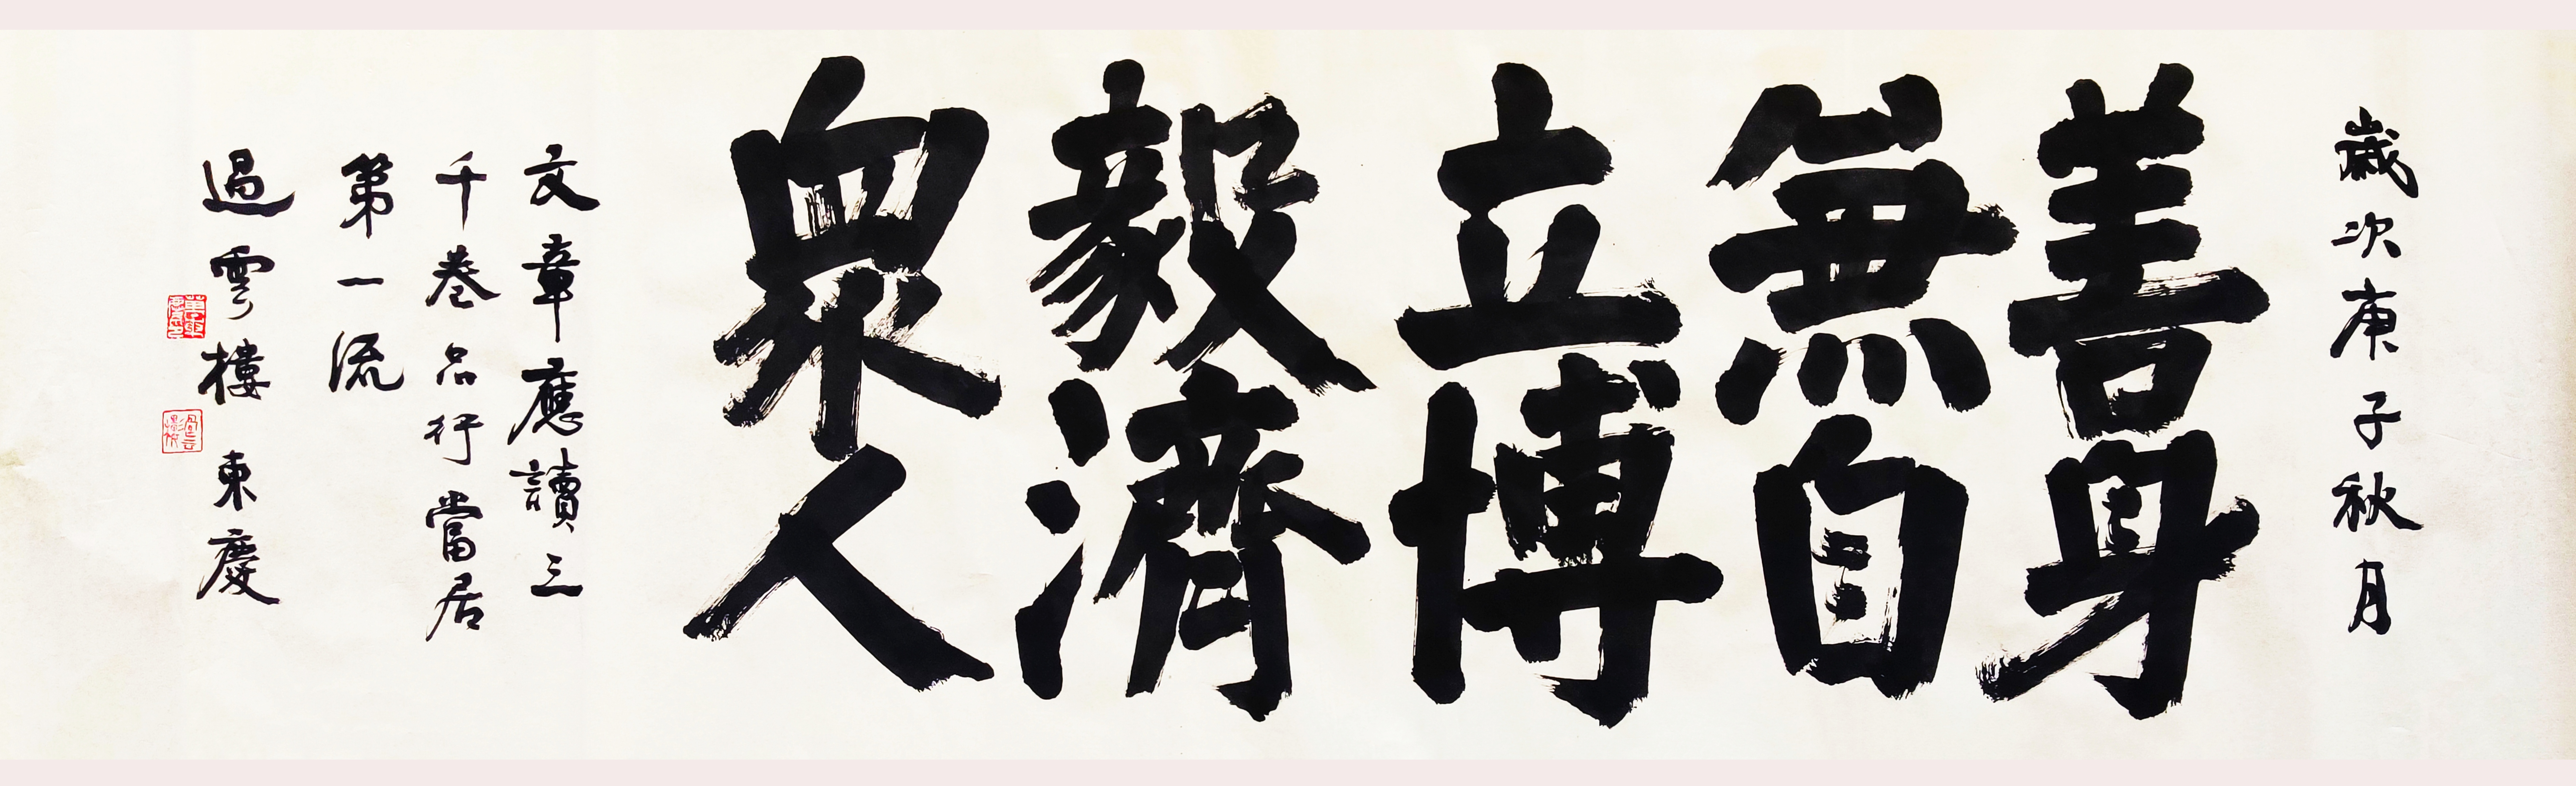 歲次庚子秋月
善身
無自
立博
毅濟
衆人
文章應讀三
千卷品行當居
第一流
過雲樓 東慶